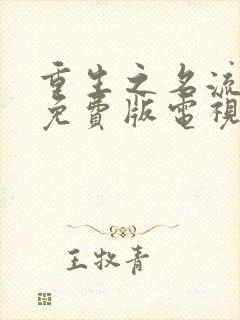 重生之名流
免費版電視
王牧青